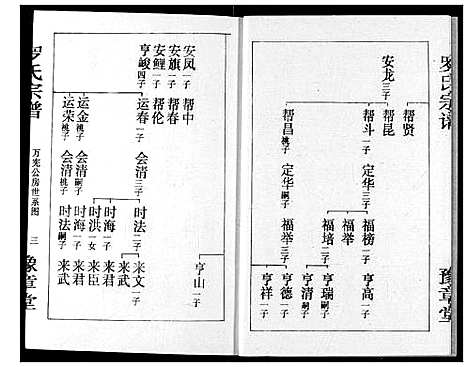 罗氏宗谱
豫章堂
安龙 三子
帮贤
帮昆
帮斗 一子
帮昌 桃子
定华 三子
定华 嗣子
福榜 一子
福举
福培 二子
福举 三子
亨高 一子
亨瑞 嗣子
亨清 嗣子
亨德 一子
亨祥 二子
罗氏宗谱
万宪公房世系图
三
豫章堂
安凤 一子
安旗 一子
安鲤 一子
亨峻 四子
帮中
帮春
帮伦
运春 一子
运金 桃子
运荣 桃子
会清 三子
会清 嗣子
会清 桃子
时法 二子
时海 一子
时洪 一女
时海 一子
时法 嗣子
亨山 一子
来文 一子
来武
来君
来臣
来君
来武